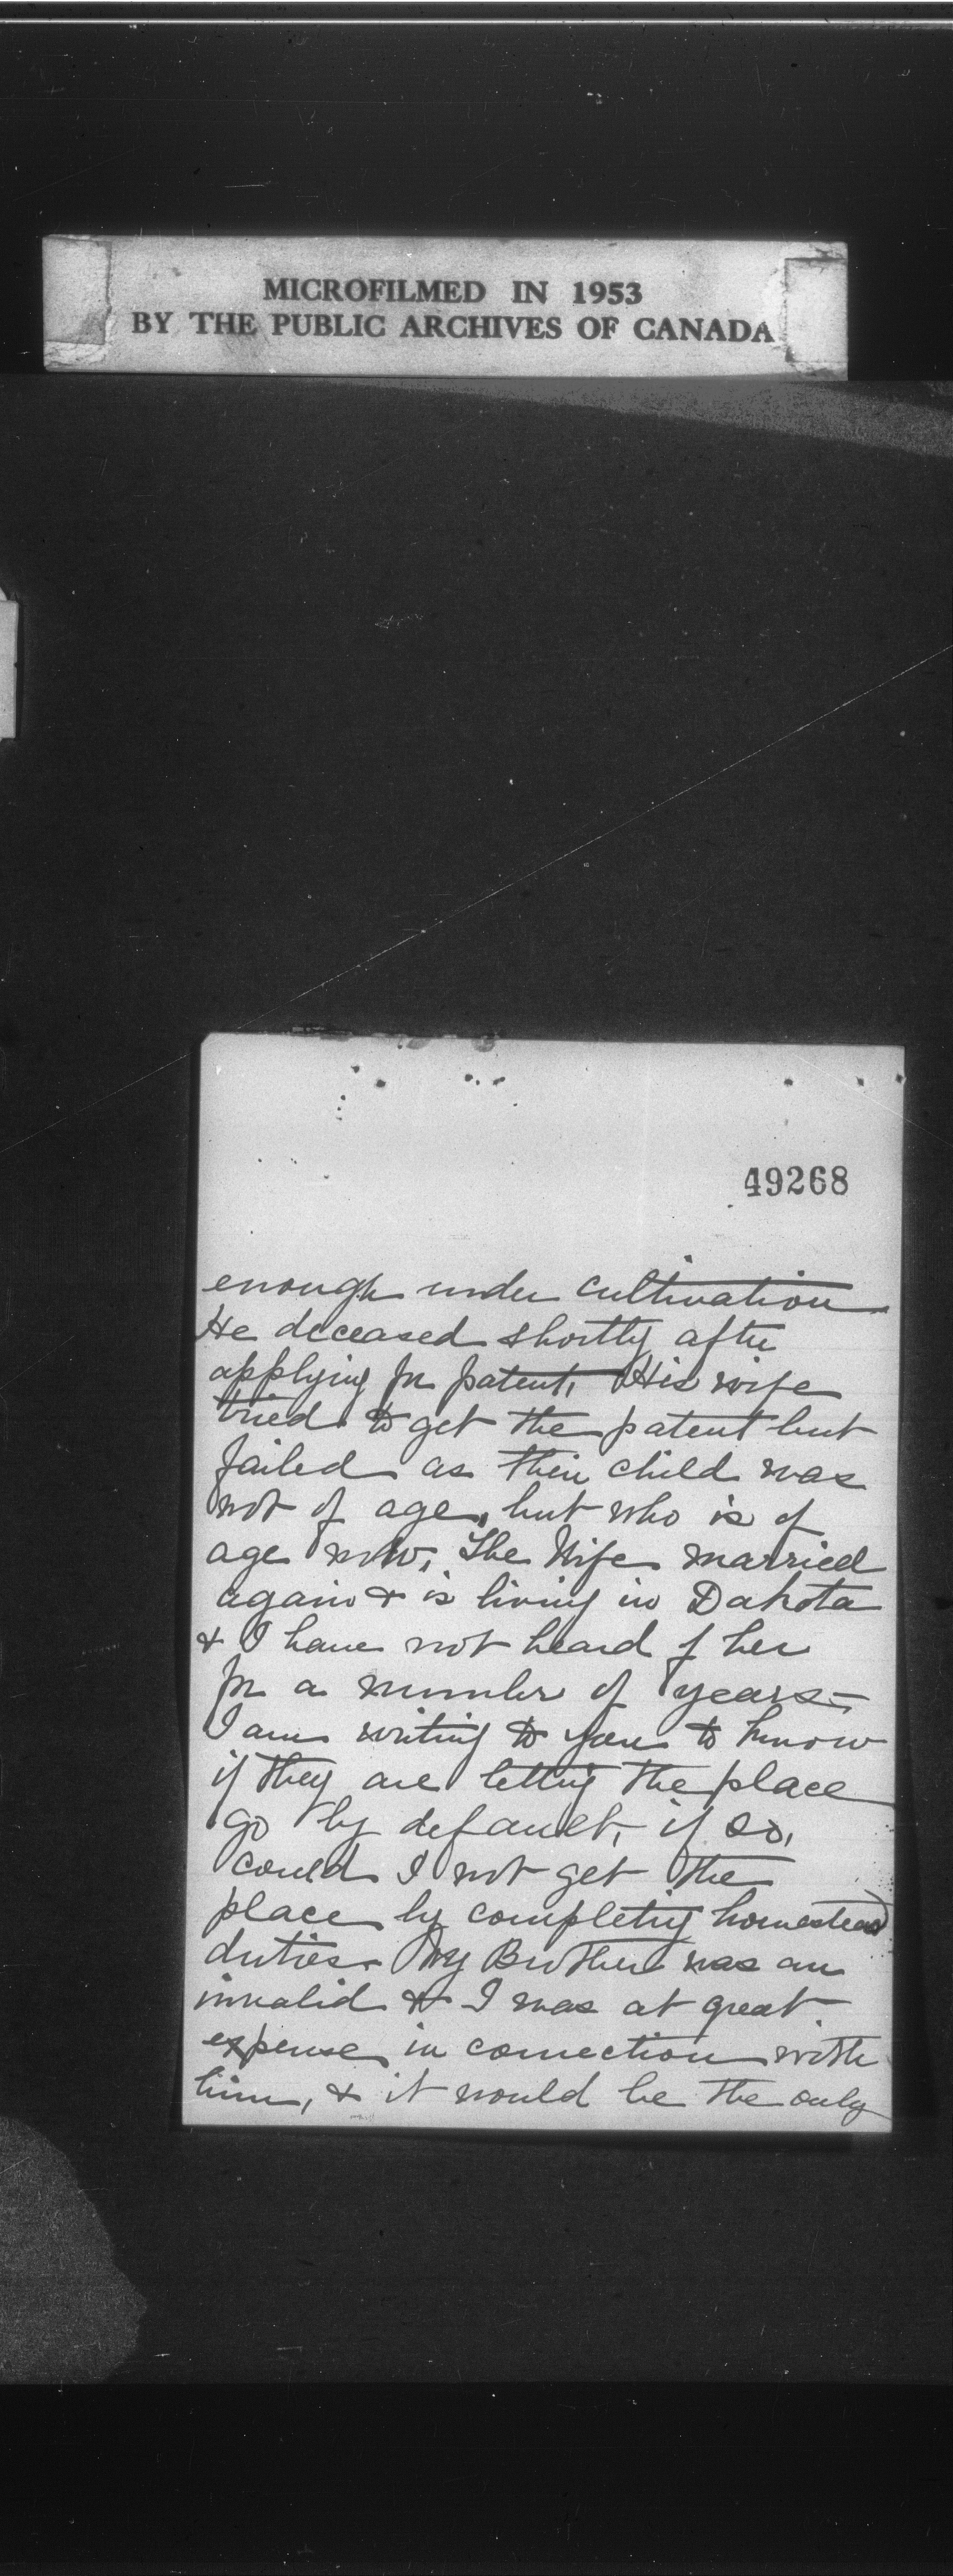 MICROFILMED IN 1953
BY THE PUBLIC ARCHIVES OF CANADA
49268
enough under cultivation
He deceased shortly after
applying for patent, His wife
tried to get the patent but
failed as their child was
not of age, but who is of
age now, The Wife married
again & is living in Dakota
& I have not heard of her
for a number of years-
I am writing to you to know
if they are letting the place
go by default, if so,
could I not get the
place by completing homestead
duties. My Brother was an
invalid & I was at great
expense in connection with
him, & it would be the only